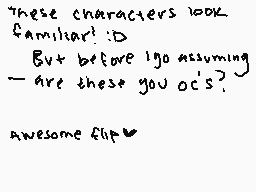 These characters look
familiar! :D
But before I go assuming
- are these you oc's?
Awesome flip ♥